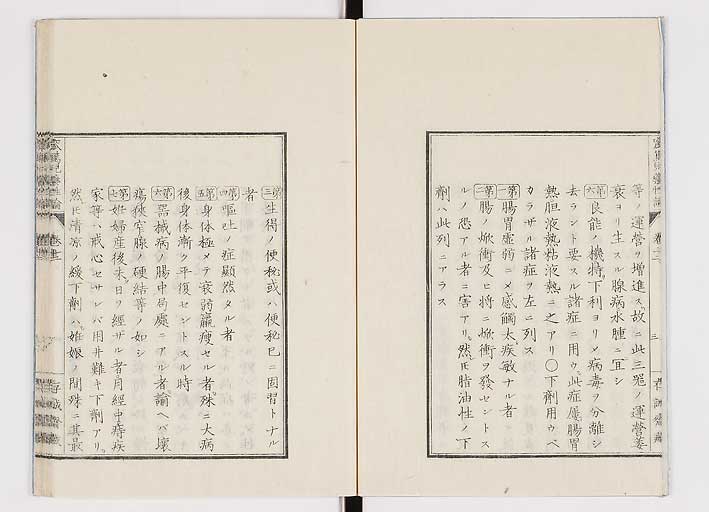 等ノ運營ヲ増進ス故ニ此三器ノ運營萎
衰ヨリ生スル腺病水腫ニ冝シ
第六良能ノ機轉下利ヨリメ病毒ヲ分離シ
去ラント要スル諸症ニ用ウ此症屢腸胃
熱胆液熱粘液熱ニ之アリ〇下劑用ウベ
カラザル諸症ヲ左ニ列ス
第一腸胃虚弱ニメ感觸太疾敏ナル者
第二腸ノ焮衝及ヒ將ニ焮衝ヲ發セントス
ルノ恐アル者ニ害アリ然𪜈脂油性ノ下
劑ハ此列ニアラス
第三生得ノ便秘或ハ便秘已ニ固習トナル
者
第四嘔吐ノ症顯然タル者
第五身体極メテ衰弱羸瘦セル者殊ニ大病
後身体漸ク平復セントスル時
第六器械病ノ腸中局處ニアル者諭ヘバ壊
瘍狹窄腺ノ硬結等ノ如シ
第七妊婦産後未日ヲ經ザル者月經中痔疾
家等ハ戒心セサレバ用井難キ下劑アリ
然𪜈清凉ノ緩下劑ハ妊娠ノ間殊ニ其最
三